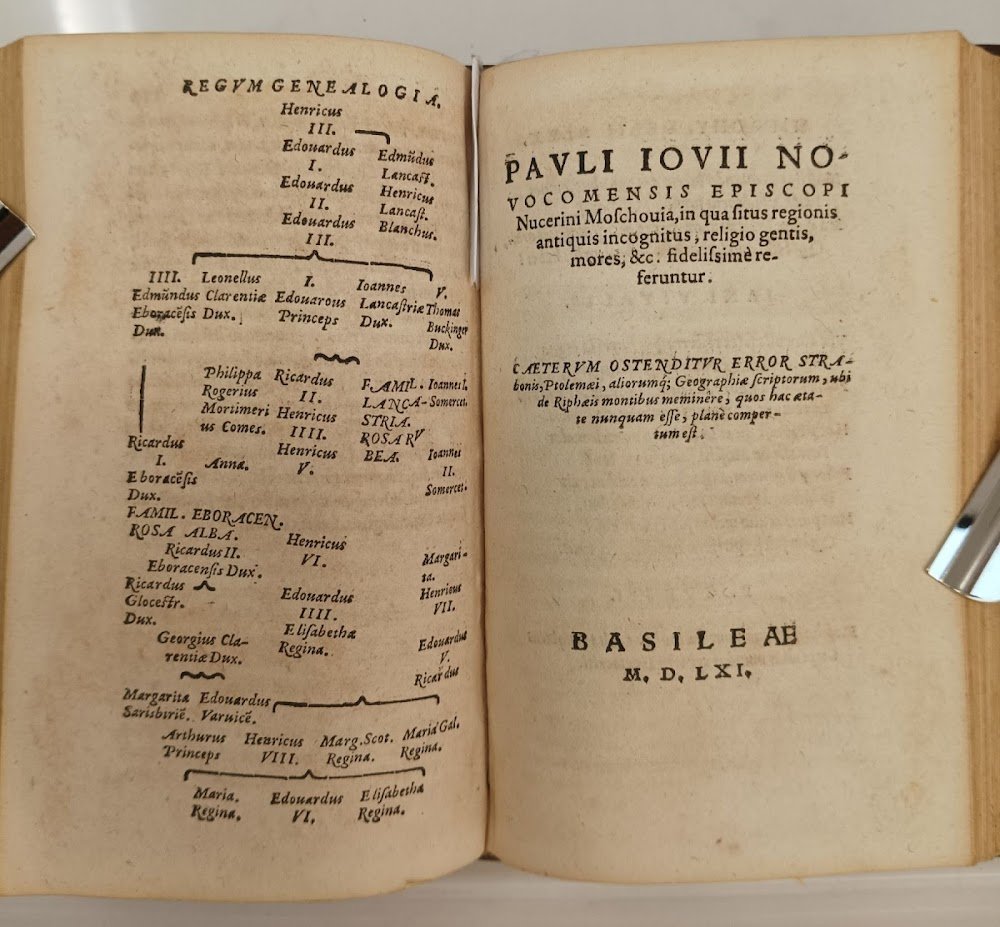 REGVM GENEALOGIA.
Henricus
III.
Edouardus
I.
Edmũdus
Lancaſt.
Edouardus
II.
Henricus
Lancaſt.
Edouardus
III.
Blanchus.
IIII.
Edmũndus
Eboracẽſis
Dux.
Leonellus
Clarentiæ
Dux.
I.
Edouarous
Princeps
Ioannes
Lancaſtriæ
Dux.
V.
Thomas
Buckinger
Dux.
Philippa
Rogerius
Mortimeri
us Comes.
Ricardus
II.
Henricus
IIII.
Henricus
V.
FAMIL.
LANCA-
STRIA.
ROSA RV
BEA.
Ioannes I.
Somercet.
Ioannes
II.
Somercet.
Ricardus
I.
Eboracẽſis
Dux.
Anna.
FAMIL. EBORACEN.
ROSA ALBA.
Ricardus II.
Eboracenſis Dux.
Henricus
VI.
Margari-
ta.
Henricus
VII.
Ricardus
Gloceſtr.
Dux.
Edouardus
IIII.
Eliſabetha
Regina.
Georgius Cla-
rentiæ Dux.
Edouardus
V.
Ricardus
Margarita
Sarisbiriẽ.
Edouardus
Varuicẽ.
Arthurus
Princeps
Henricus
VIII.
Marg.Scot.
Regina.
Maria Gal.
Regina.
Maria.
Regina.
Edouardus
VI.
Eliſabetha
Regina.
PAVLI IOVII NO-
VOCOMENSIS EPISCOPI
Nucerini Moſchouia, in qua ſitus regionis
antiquis incognitus, religio gentis,
mores, &c. fideliſsimè re-
feruntur.
CÆTERVM OSTENDITVR ERROR STRA-
bonis, Ptolemæi, aliorumq; Geographiæ ſcriptorum, ubi
de Riphæis montibus meminêre, quos hac æta-
te nunquam eſſe, planè comper-
tum eſt.
BASILEAE
M. D. LXI.